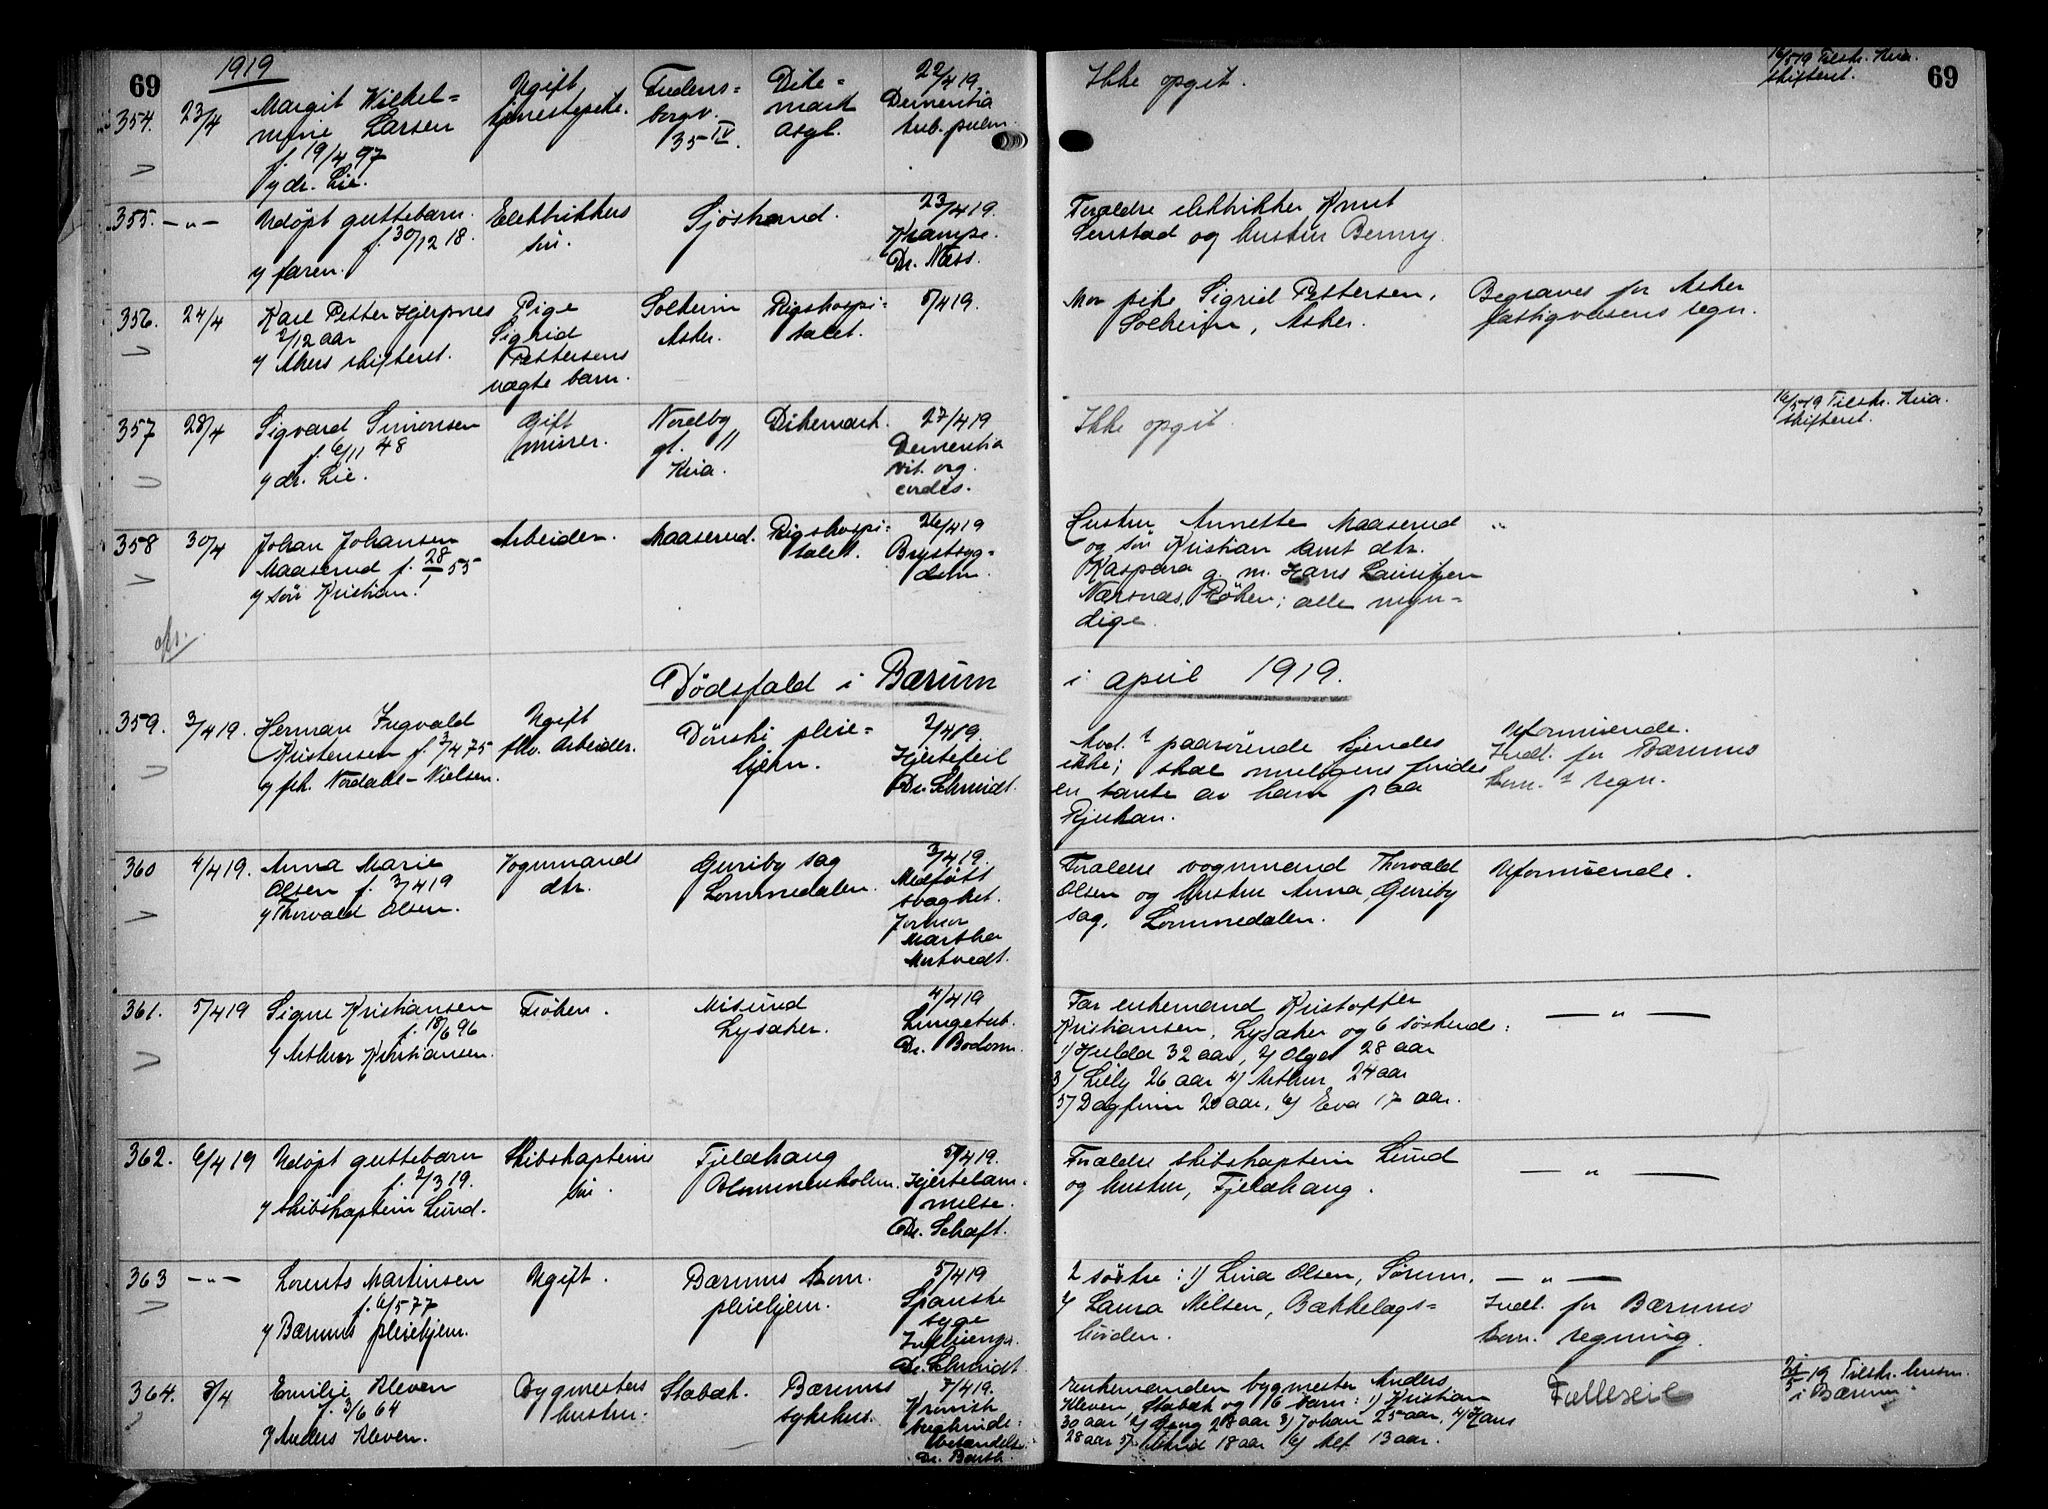 69
1919
69
354.
23/4
Margit Wilhel=
mine Larsen
f. 19/4 97
v/ dr. Lie.
Ugift
tjenestepike.
Fredens=
borgv.
35 IV.
Dike=
mark
asyl.
22/4 19.
Dementia
tub. pulm.
Ikke opgit.
16/5 19 Tilskr. Kria.
skifteret.
355.
— „ —
Udöpt guttebarn.
f. 30/12 18.
v/ faren.
Elektrikers
sön.
Sjöstrand.
23/4 19.
Krampe.
Dr. Næss.
Forældre elektriker Knut
Senstad og hustru Benny.
356.
24/4
Karl Petter Hjerpnes
2/12 aar
v/ Akers skifteret.
Pige
Sigrid
Pettersens
uægte barn.
Solheim
Asker.
Rigshospi=
talet.
5/4 19.
Mor pike Sigrid Pettersen,
Solheim, Asker.
Begraves for Asker
fattigvæsens regn.
357
28/4
Sigvard Simonsen
f. 6/11 48
v/ dr. Lie.
Gift
murer.
Nordby
gt. 11
Kria.
Dikemark.
27/4 19
Dementia
vit. org.
cordis.
Ikke opgit.
16/5 19 Tilskr. Kria.
skifteret.
358
30/4
Johan Johansen
Maaserud f. 28/1 55
v/ sön Kristian.
Arbeider.
Maaserud.
Rigshospi=
talet.
26/4 19
Brystsyg=
dom.
Hustru Annette Maaserud
og sön Kristian samt dtr.
Kaspara g. m. Hans Lauritzen
Nærsnes, Röken; alle myn=
dige.
„
Dödsfald i Bærum
i april 1919.
359.
3/4 19.
Herman Ingvald
Kristensen f. 3/4 75
v/ frk. Nordahl-Nielsen.
Ugift
fhv. Arbeider.
Dönski pleie=
hjem.
2/4 19.
Hjertefeil
Dr. Schmidt.
Avd. s paarörende kjendes
ikke; skal muligens findes
en tante av ham paa
Rjukan.
Uformuende.
Indl. for Bærums
kom. s regn.
360
4/4 19.
Anna Marie
Olsen f. 3/4 19
v/ Thorvald Olsen.
Vognmands
dtr.
Guriby sag
Lommedalen.
3/4 19.
Medfött
svaghet.
Jormor
Martha
Mortvedt.
Forældre vognmand Thorvald
Olsen og hustru Anna, Guriby
sag, Lommedalen.
Uformuende.
361.
5/4 19
Signe Kristiansen
f. 18/6 96
v/ Arthur Kristiansen.
Fröken.
Misund
Lysaker.
4/4 19
Lungetub.
Dr. Bodom.
Far enkemand Kristoffer
Kristiansen, Lysaker og 6 söskende:
1) Hulda 32 aar, 2) Olga 28 aar
3) Lilly 26 aar 4) Arthur 24 aar
5) Dagfinn 20 aar, 6) Eva 17 aar.
— „ —
362.
6/4 19
Udöpt guttebarn
f. 2/3 19.
v/ skibskaptein Lund.
Skibskapteins
sön.
Fjeldhaug
Blommenholm.
5/4 19.
Hjertelam=
melse.
Dr. Schaft.
Forældre skibskaptein Lund
og hustru, Fjeldhaug.
— „ —
363
— „ —
Lorents Martinsen
f. 6/5 77
v/ Bærums pleiehjem.
Ugift.
Bærums kom.
pleiehjem.
5/4 19
Spanske
syge
Dr. Schmidt
2 söstre: 1) Lina Olsen, Sörum,
2/ Laura Nilsen, Bækkelags=
— „ —
Indl. for Bærums
kom. regning.
364.
8/4
Emilie Kleven
f. 3/6 64
v/ Anders Kleven.
Bygmesters
hustru.
Stabæk.
Bærums
sykehus.
7/4 19.
Kronisk
bughinde=
betændelse.
Dr. Barth.
Enkemanden bygmester Anders
Kleven, Stabæk og 6 barn: 1) Kristian
30 aar 2) 28 aar 3) Johan 25 aar, 4) Hans
28 aar 5) Astrid 18 aar 6) Alf 13 aar.
Fælleseie
21/5 19 Tilskr.
i Bærum.